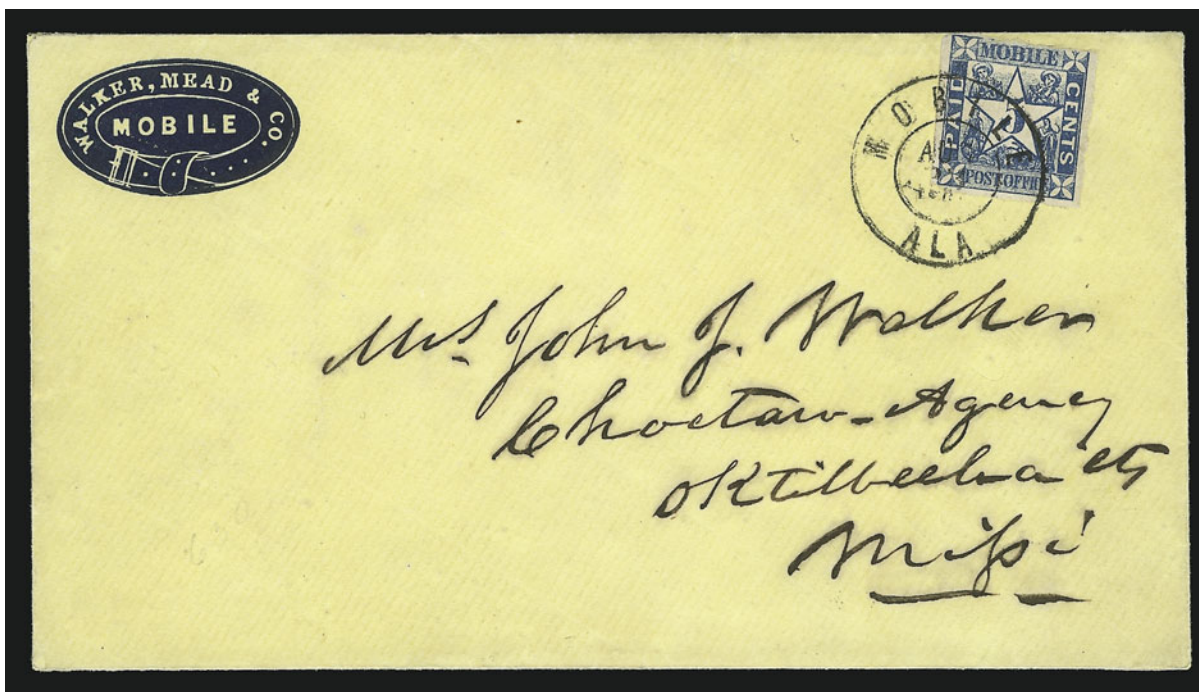 WALKER, MEAD & CO.
MOBILE
MOBILE
PAID
5
CENTS
POST OFFICE
MOBILE
ALA.
Mrs. John J. Walker
Choctaw-Agency
Oktibbeeha Cty
Missi